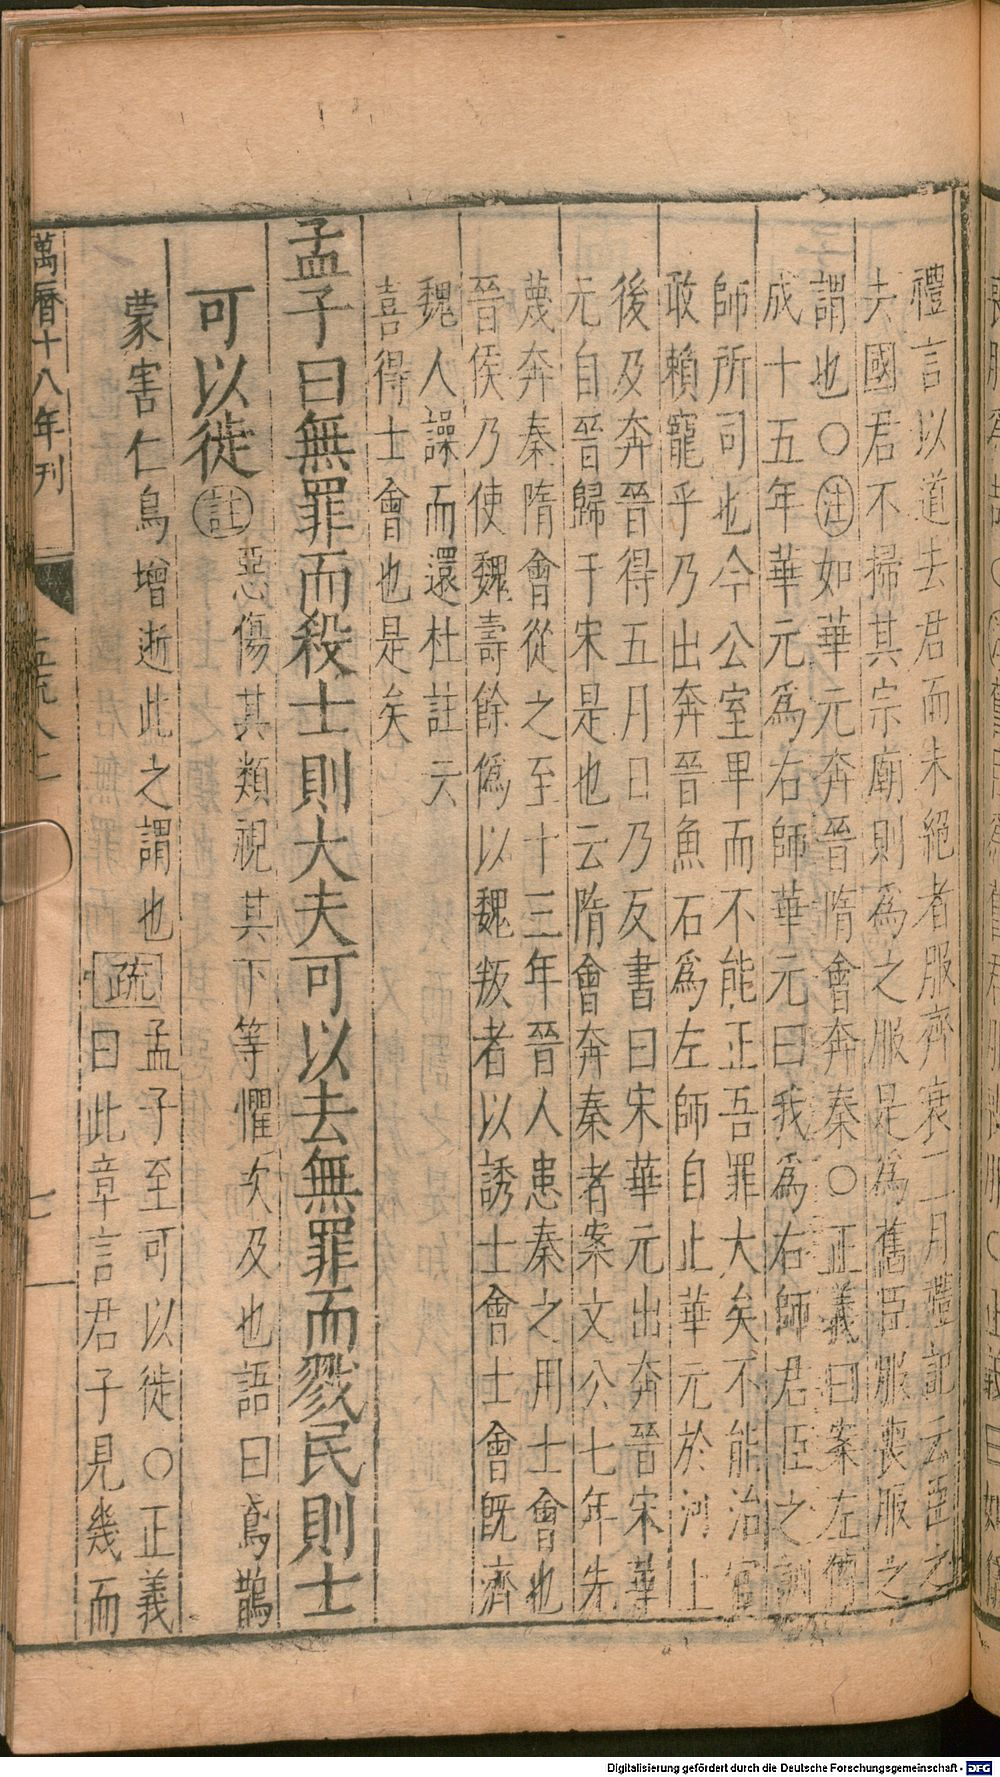 禮言以道去君而未絕者服齊衰三月禮記云臣之
去國君不掃其宗廟則為之服是為舊臣服喪服之
謂也○注如華元奔晉隋會奔秦○正義曰案左傳
成十五年華元爲右師華元曰我爲右師君臣之訓
師所司也今公室卑而不能正吾罪大矣不能治官
敢賴寵乎乃出奔晉魚石爲左師自止華元於河上
後及奔晉得五月日乃反書曰宋華元出奔晉宋華
元自晉歸于宋是也云隋會奔秦者案文公七年先
蔑奔秦隋會從之至十三年晉人患秦之用士會也
晉侯乃使魏壽餘僞以魏叛者以誘士會士會旣濟
魏人譟而還杜註云
喜得士會也是矣
孟子曰無罪而殺士則大夫可以去無罪而戮民則士
可以徙註惡傷其類視其下等懼次及也語曰鳶鵲
蒙害仁鳥增逝此之謂也疏孟子至可以徙○正義
曰此章言君子見幾而
萬曆十八年刊
七
Digitalisierung gefördert durch die Deutsche Forschungsgemeinschaft - DFG